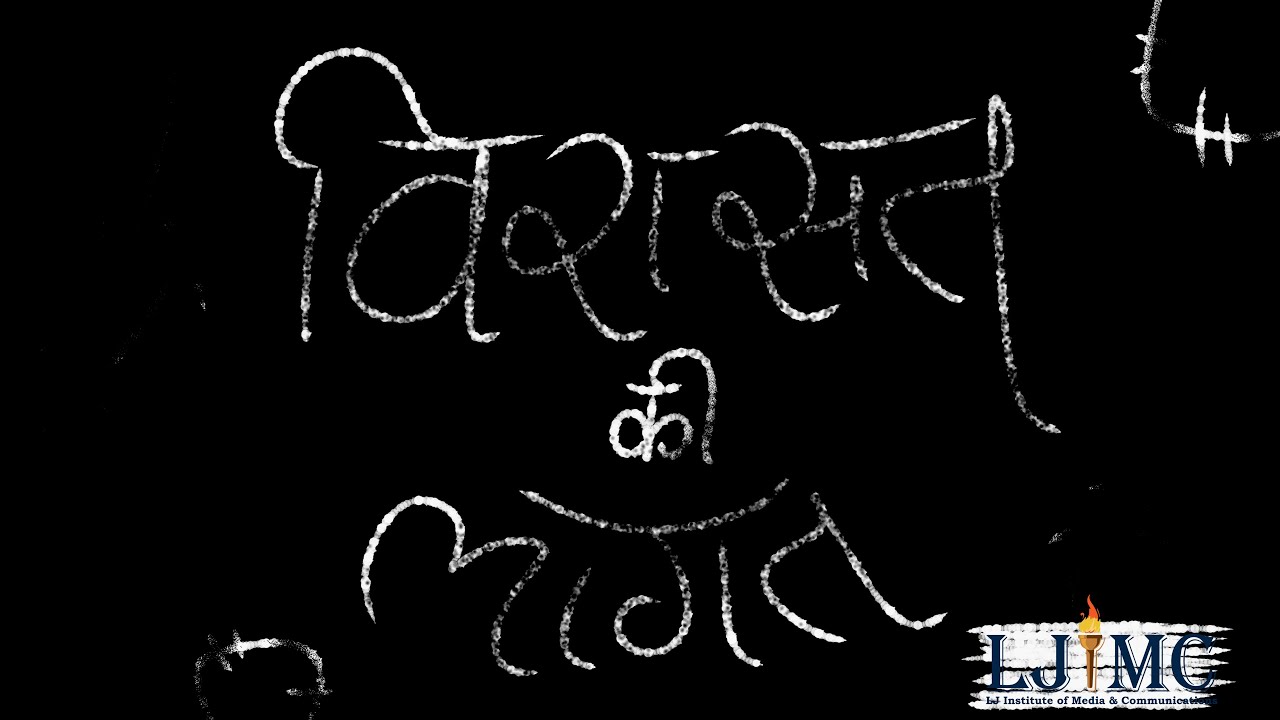 विरासत
की
लागत
LJIMC
LJ Institute of Media & Communications